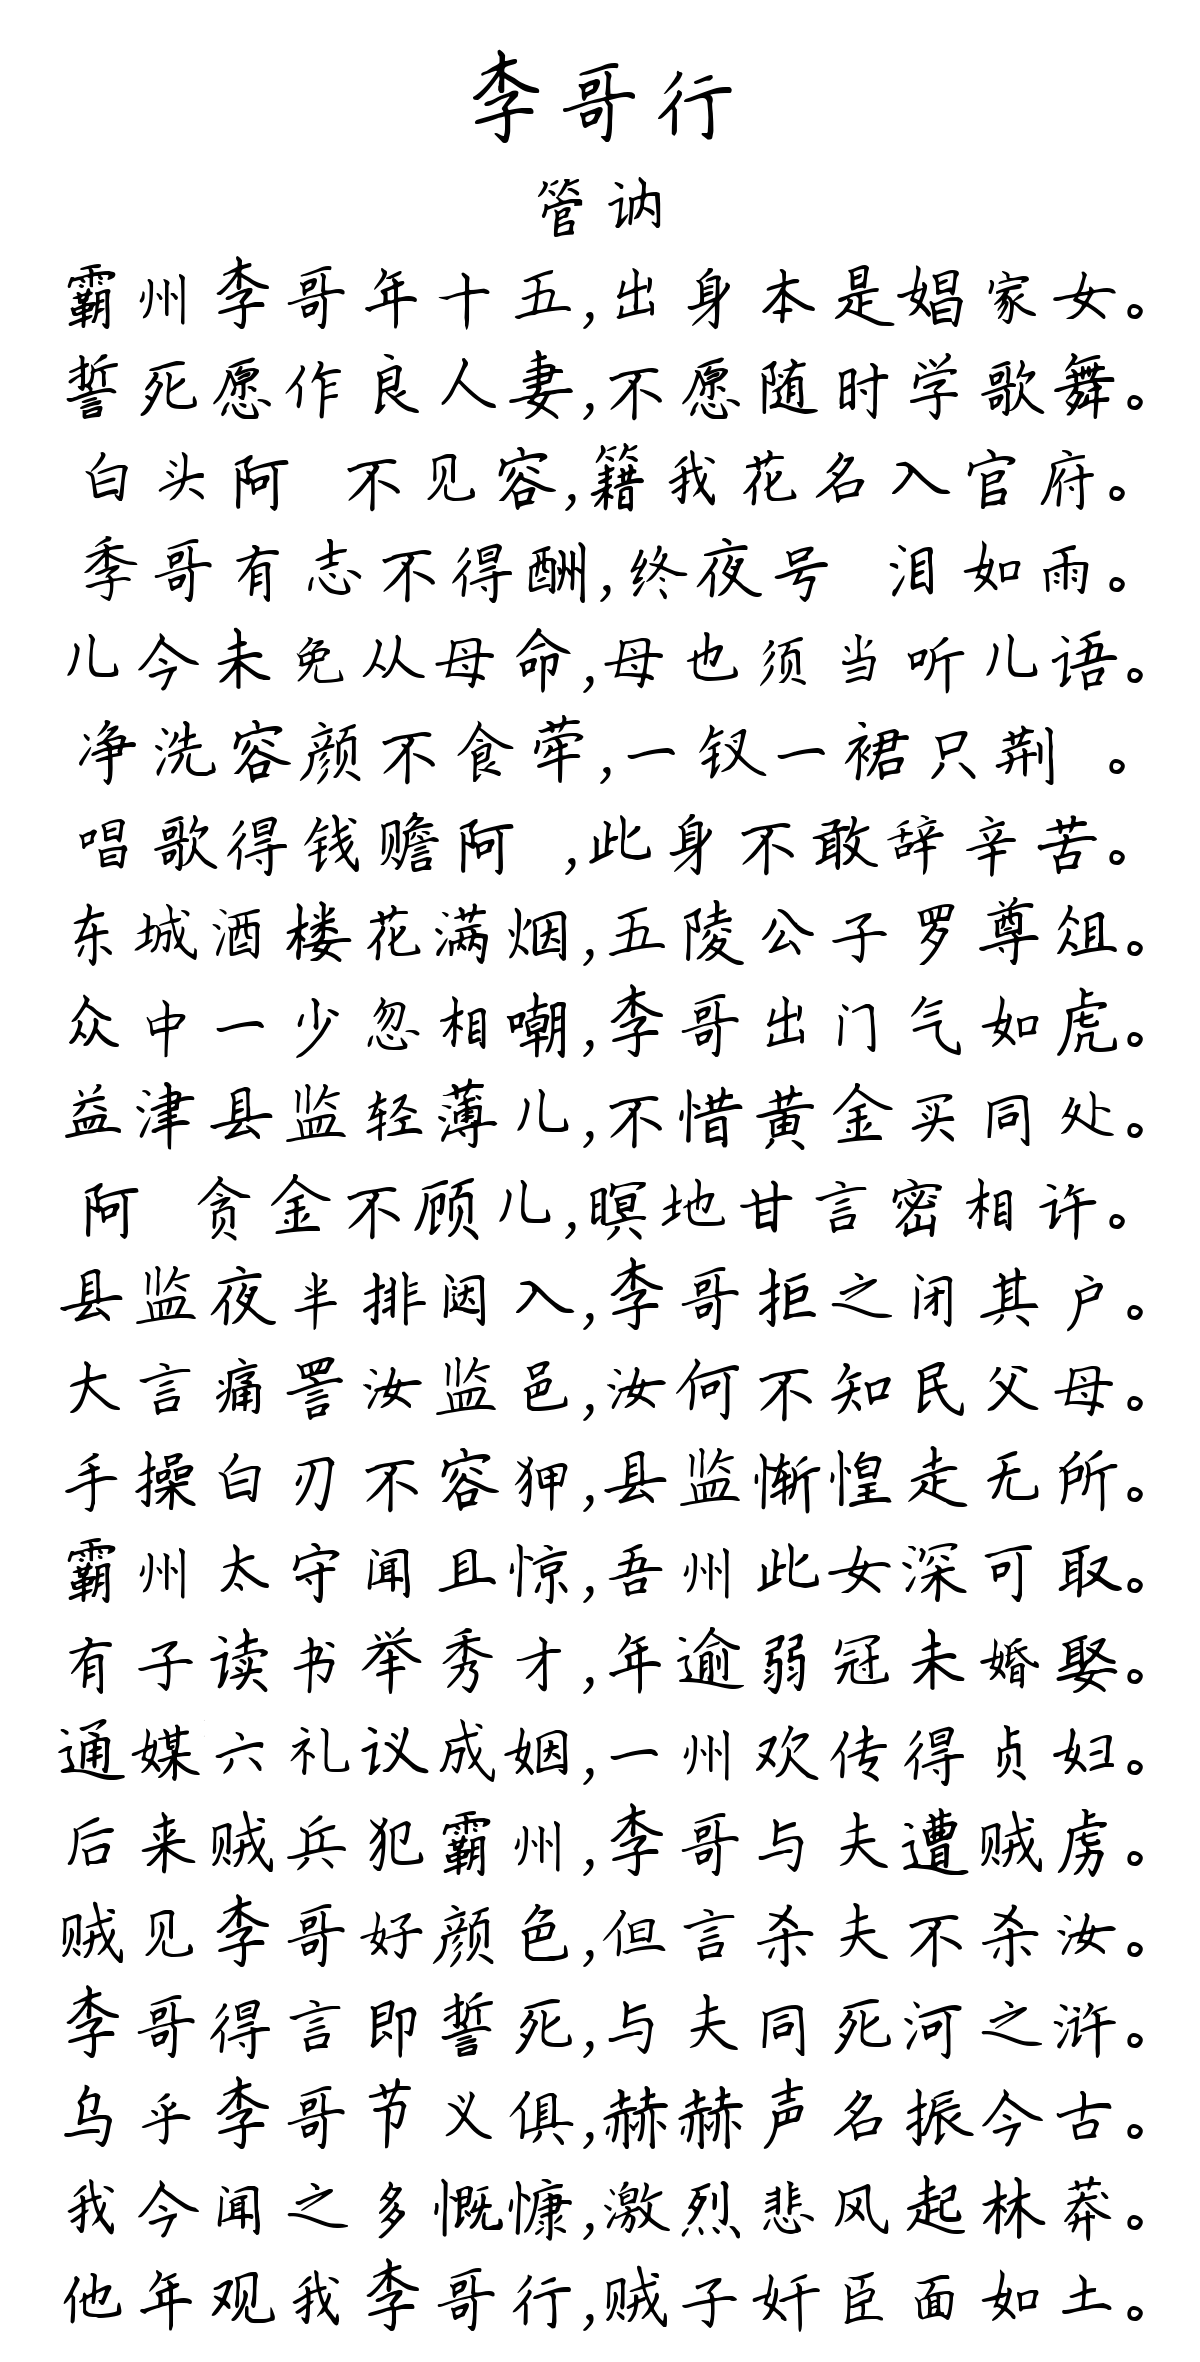 李哥行
管讷
霸州李哥年十五,出身本是娼家女。
誓死愿作良人妻,不愿随时学歌舞。
白头阿 不见容,籍我花名入官府。
季哥有志不得酬,终夜号 泪如雨。
儿今未免从母命,母也须当听儿语。
净洗容颜不食荤,一钗一裙只荆 。
唱歌得钱赡阿 ,此身不敢辞辛苦。
东城酒楼花满烟,五陵公子罗尊俎。
众中一少忽相嘲,李哥出门气如虎。
益津县监轻薄儿,不惜黄金买同处。
阿 贪金不顾儿,暝地甘言密相许。
县监夜半排闼入,李哥拒之闭其户。
大言痛詈汝监邑,汝何不知民父母。
手操白刃不容狎,县监惭惶走无所。
霸州太守闻且惊,吾州此女深可取。
有子读书举秀才,年逾弱冠未婚娶。
通媒六礼议成姻,一州欢传得贞妇。
后来贼兵犯霸州,李哥与夫遭贼虏。
贼见李哥好颜色,但言杀夫不杀汝。
李哥得言即誓死,与夫同死河之浒。
乌乎李哥节义俱,赫赫声名振今古。
我今闻之多慨慷,激烈悲风起林莽。
他年观我李哥行,贼子奸臣面如土。